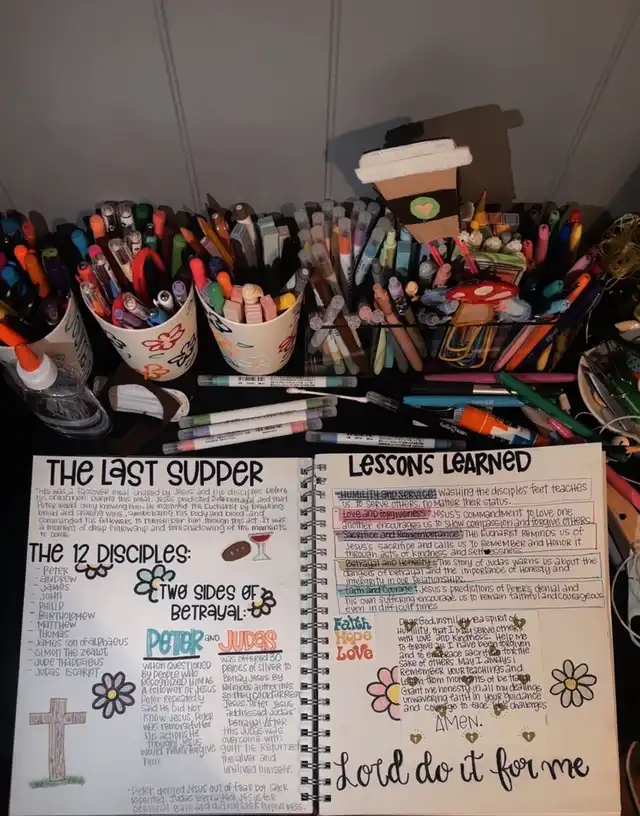 THE LAST SUPPER
This was a Passover meal shared by Jesus and his disciples before
his crucifixion. During this meal, Jesus predicted his betrayal and that
Peter would deny knowing him. He instituted the Eucharist by breaking
bread and sharing wine, symbolizing his body and blood, and
commanded his followers to remember him through this act. It was
a moment of deep fellowship and foreshadowing of the moments
to come.
THE 12 DISCIPLES:
- Peter
- Andrew
- James
- John
- Philip
- Bartholomew
- Matthew
- Thomas
- James son of Alphaeus
- Simon the Zealot
- Jude Thaddaeus
- Judas Iscariot
TWO SIDES OF
BETRAYAL:
PETER AND JUDAS
When questioned
by people who
recognized him as
a follower of Jesus
Peter repeatedly
said he did not
know Jesus. Peter
was remorseful after
his actions. He
thought Jesus
would never forgive
him
was offered 30
pieces of silver to
betray Jesus by
religious authorities
so they could arrest
Jesus. After Jesus
addressed Judas'
betrayal. After
this Judas was
overcome with
guilt he returned
the silver and
unalived himself.
- Peter denied Jesus out of fear but later
repented. Judas betrayed Jesus for
personal gain and did not seek forgiveness.
LESSONS LEARNED
Humility and Service: Washing the disciples' feet teaches
us to serve others, no matter their status.
Love and forgiveness: Jesus's commandment to love one
another encourages us to show compassion and forgive others.
Sacrifice and Remembrance: The Eucharist reminds us of
Jesus's sacrifice and calls us to remember and honor it
through acts of kindness and selflessness.
Betrayal and Honesty: The story of Judas warns us about the
dangers of betrayal and the importance of honesty and
intergrity in our relationships.
Faith and Courage: Jesus's predictions of Peter's denial and
his own suffering encourage us to remain faithful and courageous
even in difficult times.
Faith
Hope
Love
Dear God, instill in me a spirit of
humility, that I may serve others
with love and kindness. Help me
to forgive as I have been forgiven
and to embrace sacrifice for the
sake of others. May I always
remember your teachings and
learn from moments of betrayal.
Grant me honesty in all my dealings,
unwavering faith in your guidance
and courage to face challenges
AMEN.
Lord do it for me